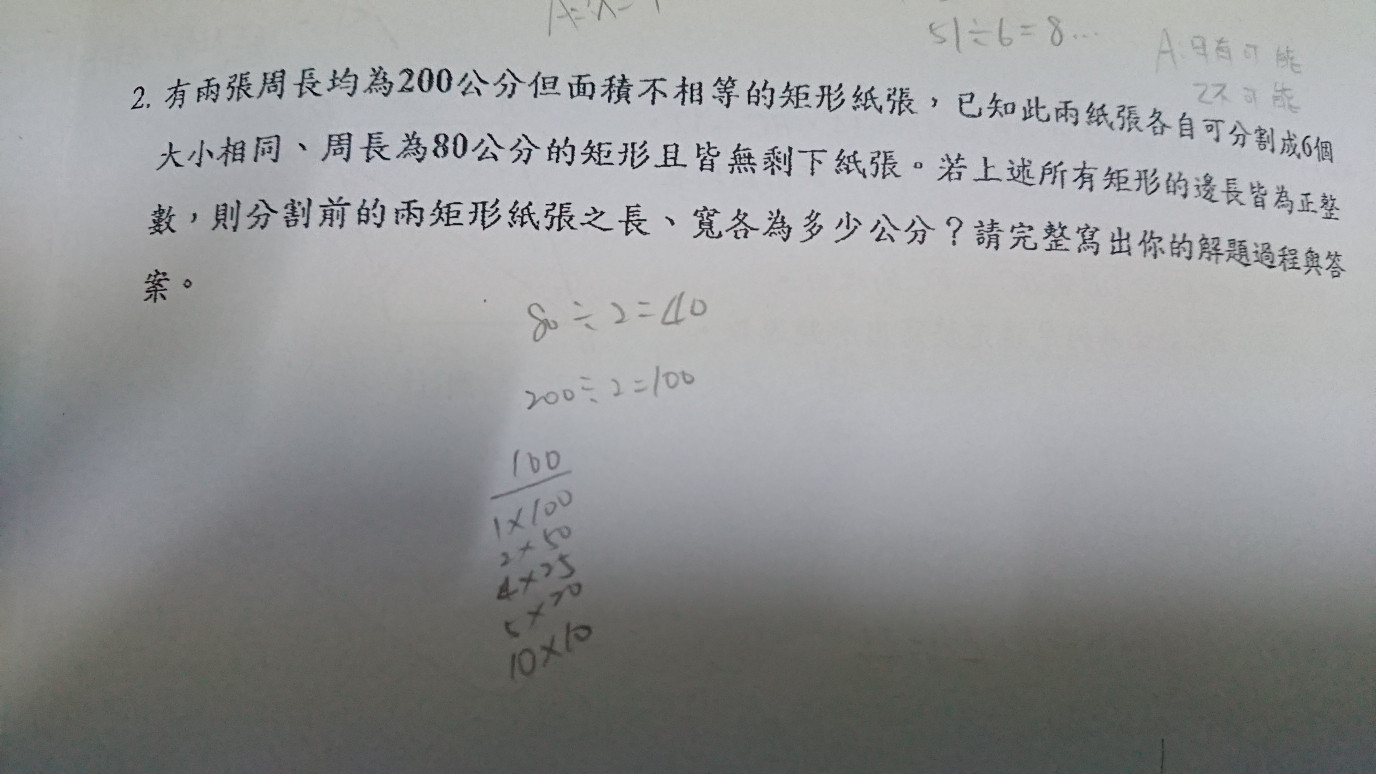 51÷6=8...
A:只有可能
乙不可能
2. 有兩張周長均為200公分但面積不相等的矩形紙張,已知此兩紙張各自可分割成6個
大小相同、周長為80公分的矩形且皆無剩下紙張。若上述所有矩形的邊長皆為正整
數,則分割前的兩矩形紙張之長、寬各為多少公分?請完整寫出你的解題過程與答
案。
80÷2=40
200÷2=100
100
1×100
2×50
4×25
5×20
10×10